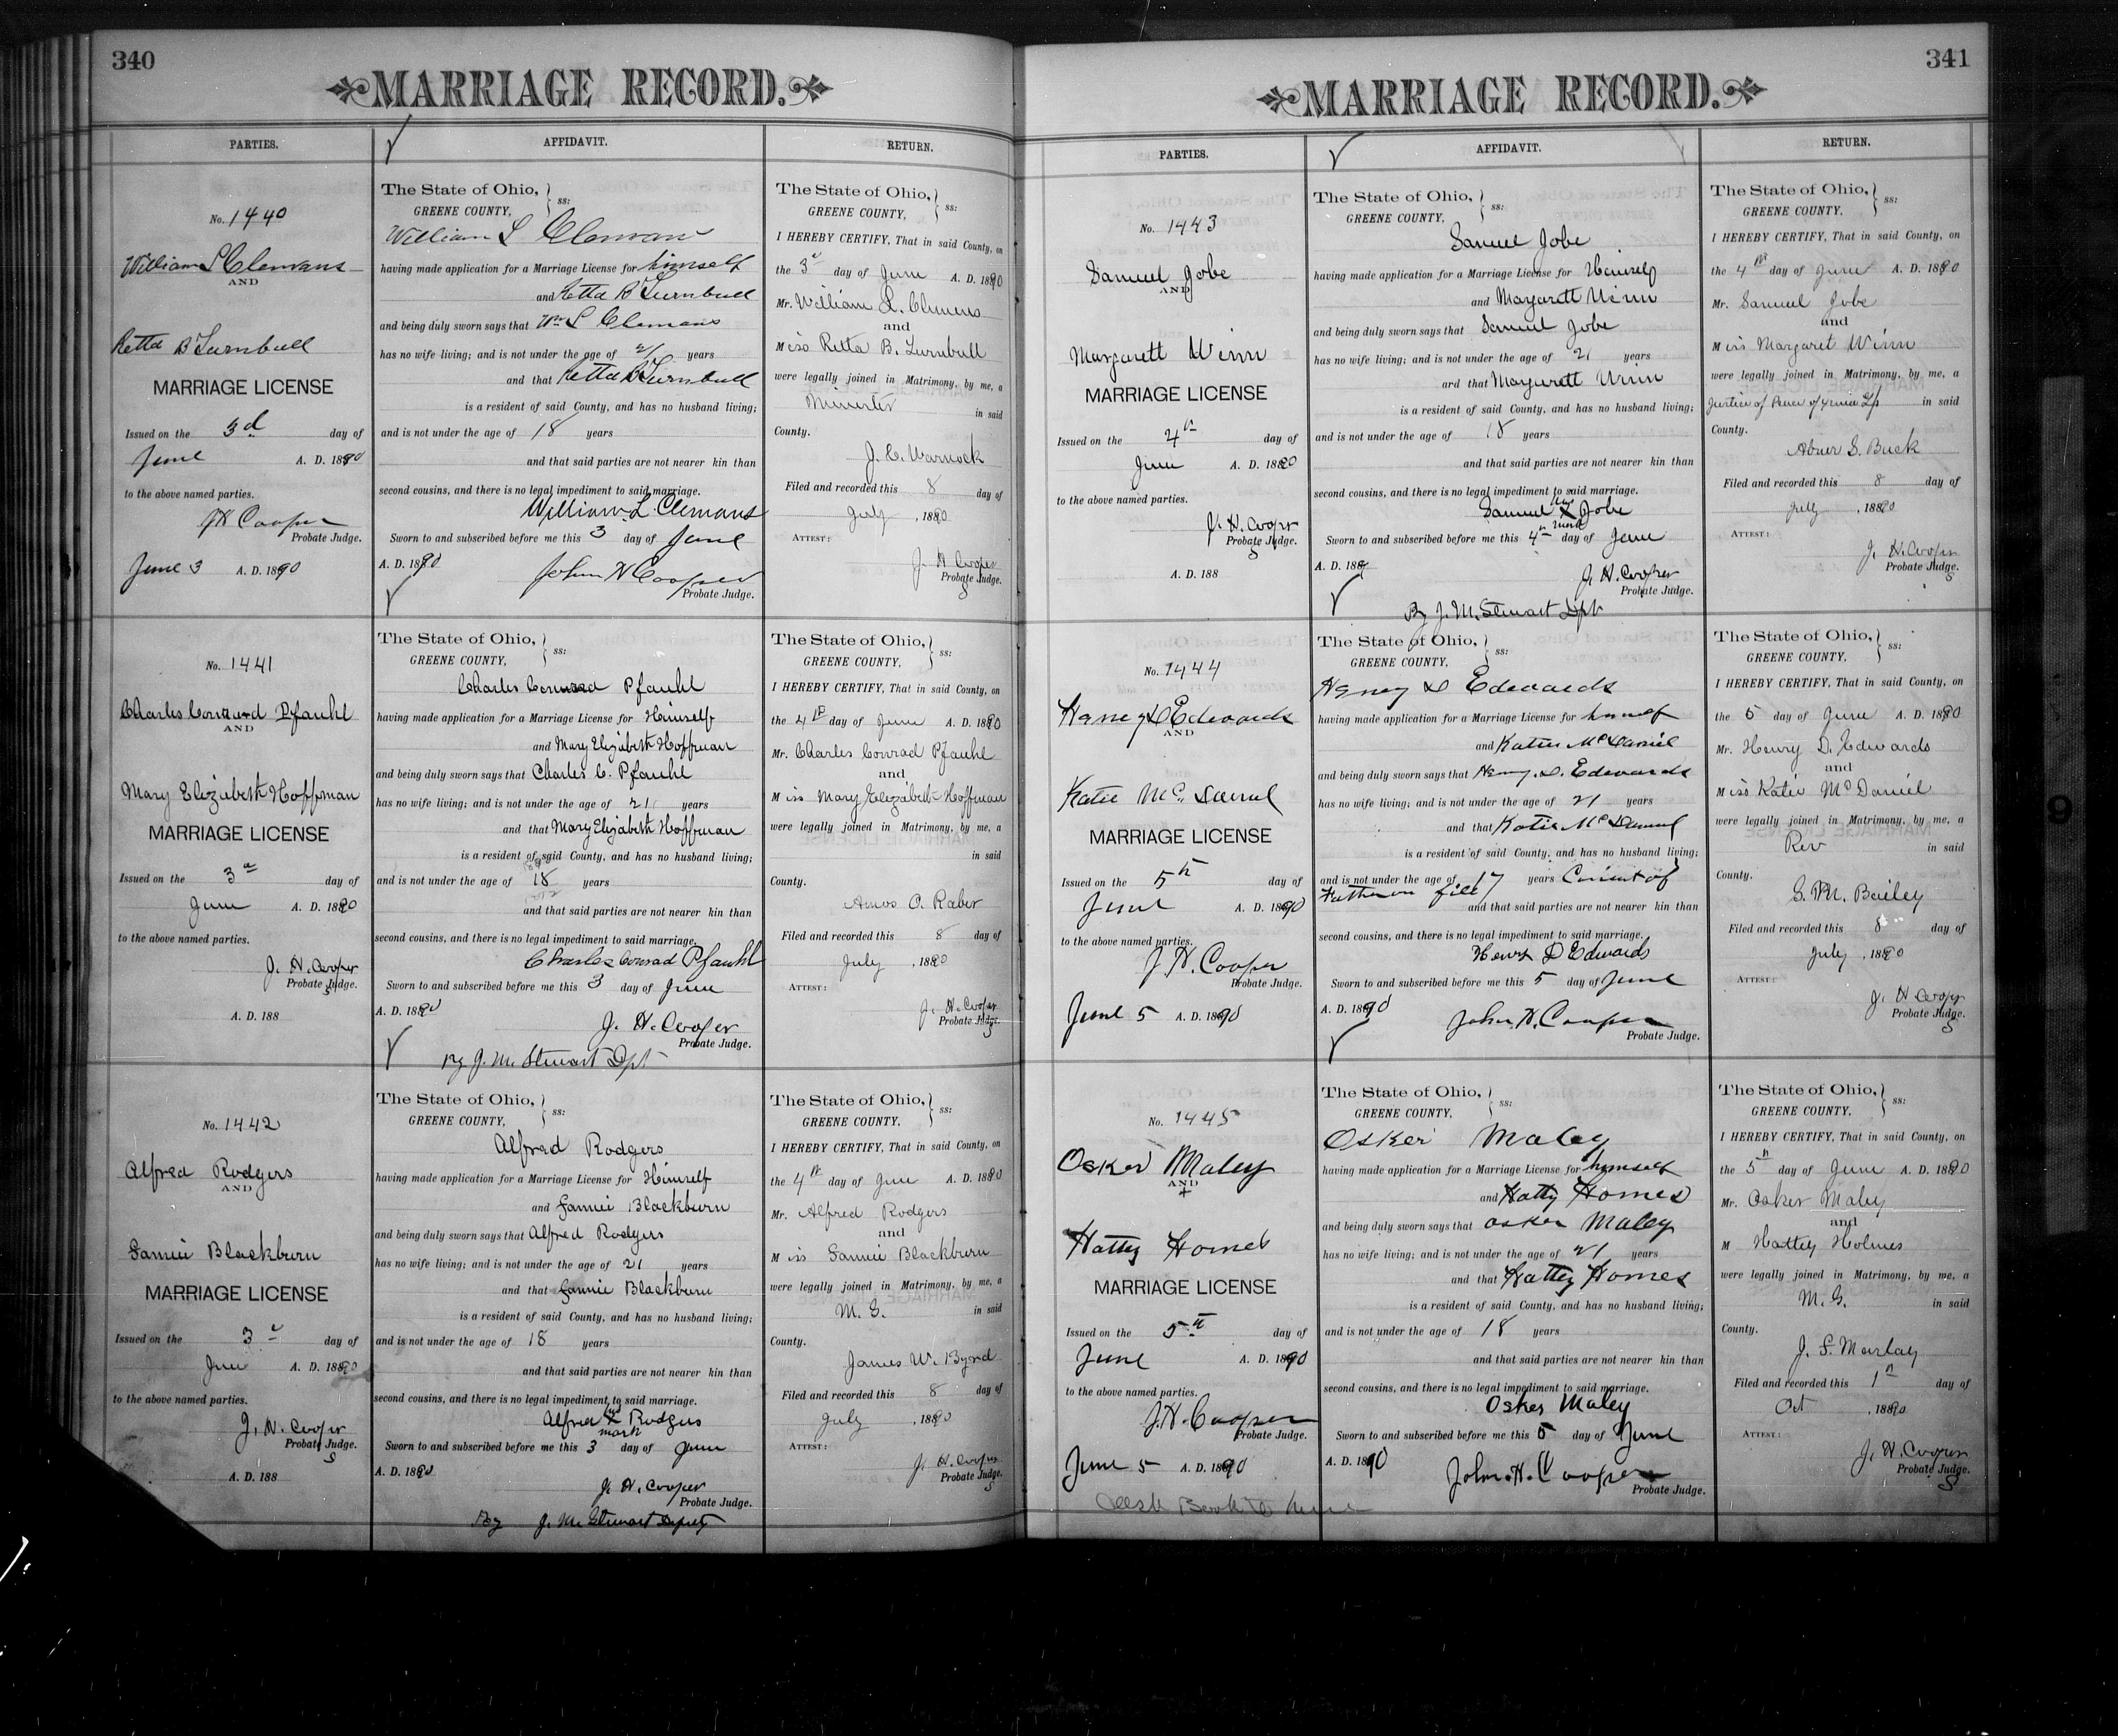 340
MARRIAGE RECORD.
PARTIES.
AFFIDAVIT.
RETURN.
No. 1440
William L Clemans
AND
Retta B Turnbull
MARRIAGE LICENSE
Issued on the 3d day of
June A. D. 1890
to the above named parties.
J H Cooper
Probate Judge.
June 3 A. D. 1890
The State of Ohio, } ss:
GREENE COUNTY,
William L Clemans
having made application for a Marriage License for himself
and Retta B Turnbull
and being duly sworn says that Wm L Clemans
has no wife living; and is not under the age of 21 years
and that Retta B Turnbull
is a resident of said County, and has no husband living;
and is not under the age of 18 years
and that said parties are not nearer kin than
second cousins, and there is no legal impediment to said marriage.
William L. Clemans
Sworn to and subscribed before me this 3 day of June
A. D. 1890
John H Cooper
Probate Judge.
The State of Ohio, } ss:
GREENE COUNTY,
I HEREBY CERTIFY, That in said County, on
the 3d day of June A. D. 1890
Mr. William L. Clemens
and
Miss Retta B. Turnbull
were legally joined in Matrimony, by me, a
Minister in said
County.
J. C. Warnock
Filed and recorded this 8 day of
July , 1890
ATTEST:
J. H Cooper
Probate Judge.
S
No. 1441
Charles Conrad Pfauhl
AND
Mary Elizabeth Hoffman
MARRIAGE LICENSE
Issued on the 3d day of
June A. D. 1890
to the above named parties.
J. H. Cooper
Probate Judge.
S
A. D. 188
The State of Ohio, } ss:
GREENE COUNTY,
Charles Conrad Pfauhl
having made application for a Marriage License for Himself
and Mary Elizabeth Hoffman
and being duly sworn says that Charles C. Pfauhl
has no wife living; and is not under the age of 21 years
and that Mary Elizabeth Hoffman
is a resident of said County, and has no husband living;
and is not under the age of 18 years
and that said parties are not nearer kin than
second cousins, and there is no legal impediment to said marriage.
Charles Conrad Pfauhl
Sworn to and subscribed before me this 3 day of June
A. D. 1890
J. H. Cooper
Probate Judge.
By J. M. Stewart Dpt
The State of Ohio, } ss:
GREENE COUNTY,
I HEREBY CERTIFY, That in said County, on
the 4th day of June A. D. 1890
Mr. Charles Conrad Pfauhl
and
Miss Mary Elezabeth Hoffman
were legally joined in Matrimony, by me, a
in said
County.
Amos O. Raber
Filed and recorded this 8 day of
July , 1890
ATTEST:
J. H. Cooper
Probate Judge.
S
No. 1442
Alfred Rodgers
AND
Fannie Blackburn
MARRIAGE LICENSE
Issued on the 3d day of
June A. D. 1890
to the above named parties.
J. H. Cooper
Probate Judge.
S
A. D. 188
The State of Ohio, } ss:
GREENE COUNTY,
Alfred Rodgers
having made application for a Marriage License for Himself
and Fannie Blackburn
and being duly sworn says that Alfred Rodgers
has no wife living; and is not under the age of 21 years
and that Fannie Blackburn
is a resident of said County, and has no husband living;
and is not under the age of 18 years
and that said parties are not nearer kin than
second cousins, and there is no legal impediment to said marriage.
Alfred his X mark Rodgers
Sworn to and subscribed before me this 3 day of June
A. D. 1890
J. H. Cooper
Probate Judge.
By J. M. Stewart Deputy
The State of Ohio, } ss:
GREENE COUNTY,
I HEREBY CERTIFY, That in said County, on
the 4th day of June A. D. 1890
Mr. Alfred Rodgers
and
Miss Fannie Blackburn
were legally joined in Matrimony, by me, a
M. G. in said
County.
James W. Byrd
Filed and recorded this 8 day of
July , 1890
ATTEST:
J. H. Cooper
Probate Judge.
S
341
MARRIAGE RECORD.
PARTIES.
AFFIDAVIT.
RETURN.
No. 1443
Samuel Jobe
AND
Margarett Winn
MARRIAGE LICENSE
Issued on the 4th day of
June A. D. 1890
to the above named parties.
J. H. Cooper
Probate Judge.
S
A. D. 188
The State of Ohio, } ss:
GREENE COUNTY,
Samuel Jobe
having made application for a Marriage License for Himself
and Margarett Winn
and being duly sworn says that Samuel Jobe
has no wife living; and is not under the age of 21 years
and that Margarett Winn
is a resident of said County, and has no husband living;
and is not under the age of 18 years
and that said parties are not nearer kin than
second cousins, and there is no legal impediment to said marriage.
Samuel his X mark Jobe
Sworn to and subscribed before me this 4th day of June
A. D. 188
J. H. Cooper
Probate Judge.
By J. M. Stewart Dpt
The State of Ohio, } ss:
GREENE COUNTY,
I HEREBY CERTIFY, That in said County, on
the 4th day of June A. D. 1890
Mr. Samuel Jobe
and
Miss Margaret Winn
were legally joined in Matrimony, by me, a
Justice of Peace of Xenia Tp in said
County.
Abner S. Buck
Filed and recorded this 8 day of
July , 1890
ATTEST:
J. H. Cooper
Probate Judge.
S
No. 1444
Henry D Edwards
AND
Katie Mc. Daniel
MARRIAGE LICENSE
Issued on the 5th day of
June A. D. 1890
to the above named parties.
J. H. Cooper
Probate Judge.
June 5 A. D. 1890
The State of Ohio, } ss:
GREENE COUNTY,
Henry D Edwards
having made application for a Marriage License for himself
and Katie McDaniel
and being duly sworn says that Henry. D. Edwards
has no wife living; and is not under the age of 21 years
and that Katie McDaniel
is a resident of said County, and has no husband living;
and is not under the age of 17 years Consent of
Father on file and that said parties are not nearer kin than
second cousins, and there is no legal impediment to said marriage.
Henry D Edwards
Sworn to and subscribed before me this 5 day of June
A. D. 1890
John. H. Cooper
Probate Judge.
The State of Ohio, } ss:
GREENE COUNTY,
I HEREBY CERTIFY, That in said County, on
the 5 day of June A. D. 1890
Mr. Henry D. Edwards
and
Miss Katie McDaniel
were legally joined in Matrimony, by me, a
Rev in said
County.
G. M. Bailey
Filed and recorded this 8 day of
July , 1890
ATTEST:
J. H Cooper
Probate Judge.
S
No. 1445
Osker Maley
AND
Hattey Homes
MARRIAGE LICENSE
Issued on the 5th day of
June A. D. 1890
to the above named parties.
J. H. Cooper
Probate Judge.
June 5 A. D. 1890
The State of Ohio, } ss:
GREENE COUNTY,
Osker Maley
having made application for a Marriage License for himself
and Hatty Homes
and being duly sworn says that Osker Maley
has no wife living; and is not under the age of 21 years
and that Hattey Homes
is a resident of said County, and has no husband living;
and is not under the age of 18 years
and that said parties are not nearer kin than
second cousins, and there is no legal impediment to said marriage.
Osker Maley
Sworn to and subscribed before me this 5 day of June
A. D. 1890
John. H. Cooper
Probate Judge.
The State of Ohio, } ss:
GREENE COUNTY,
I HEREBY CERTIFY, That in said County, on
the 5th day of June A. D. 1890
Mr. Osker Maley
and
M Hattey Holmes
were legally joined in Matrimony, by me, a
M. G. in said
County.
J. S. Marlay
Filed and recorded this 1st day of
Oct , 1890
ATTEST:
J. H. Cooper
Probate Judge.
S
9